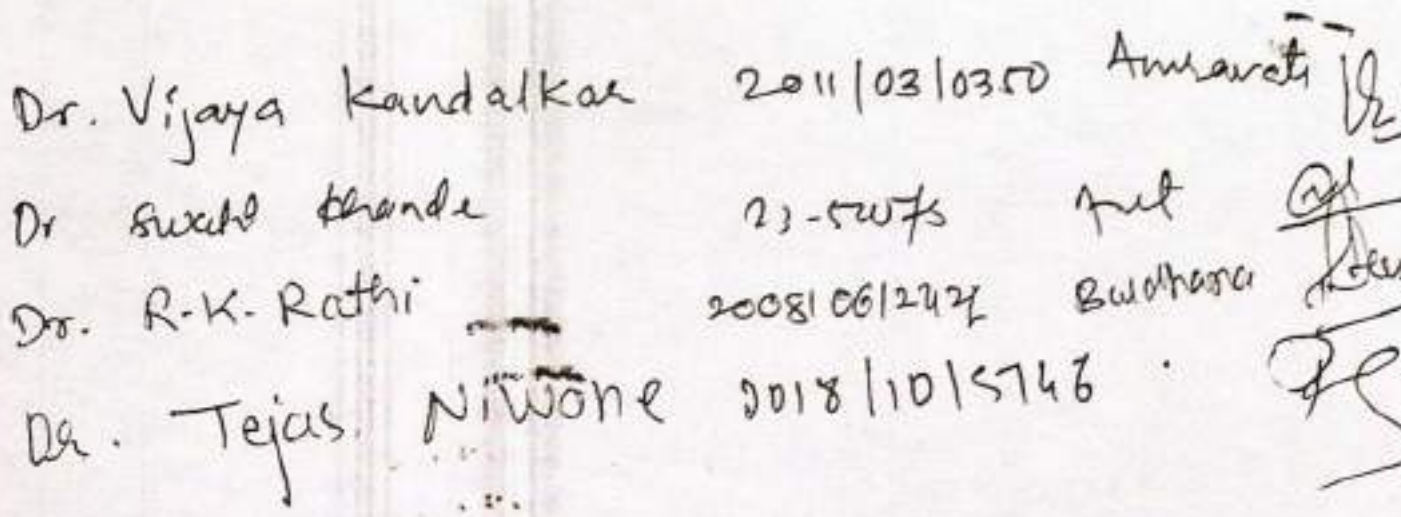 Dr. Vijaya Kandalkar 2011/03/0350 Amravati
Dr Swati
Dr. R.K. Rathi 2008/06/2424 Buldhana
Dr. Tejas Niwone 2018/10/5746